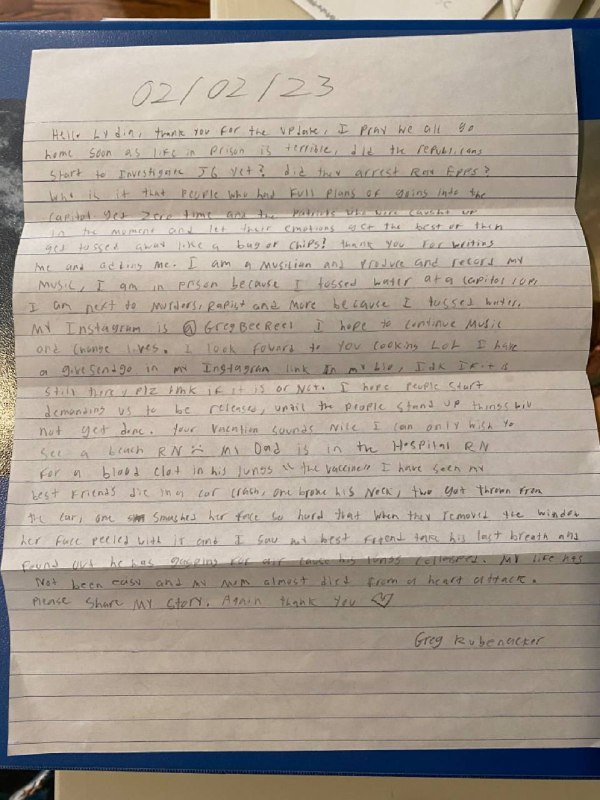 02/02/23
Hello Lydia, thank you for the update, I pray we all go
home soon as life in prison is terrible, did the republicans
start to Investigate J6 yet? did they arrest Ray Epps?
Who is it that People who had Full Plans of going into the
Capitol get Zero time and the Patriots who were caught up
in the moment and let their emotions get the best of them
get tossed away like a bag of chips? thank you for writing
me and adding me. I am a Musician and Produce and record my
Music, I am in prison because I tossed water at a Capitol cop,
I am next to Murders, Rapist and more because I tossed water.
My Instagram is @GregBeeReel I hope to continue Music
and Change lives. I look foward to you looking LoL I have
a givesendgo in my Instagram link in my bio, Idk If it is
still there, Plz lmk if it is or Not. I hope people start
demanding us to be released, until the people stand up things will
not get done. Your vacation sounds Nice I can only wish to
see a beach RN :( My Dad is in the Hospital RN
for a blood Clot in his lungs "the vaccines" I have seen my
best Friends die in a car crash, one broke his Neck, two got thrown from
the car, one smashed her face so hard that when they removed the window
her face peeled with it and I saw my best friend take his last breath and
found out he was gasping for air cause his lungs collapsed. My life has
Not been easy and my Mum almost died from a heart attack.
Please Share My Story. Again thank you
Greg Rubenacker